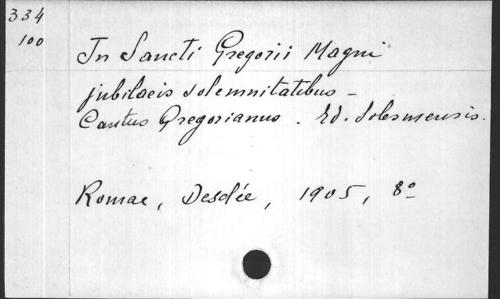 334
100
In Sancti Gregorii Magni
jubilaeis solemnitatibus -
Cantus Gregorianus. Ed. Solesmensis.
Romae, Desclée, 1905, 8°